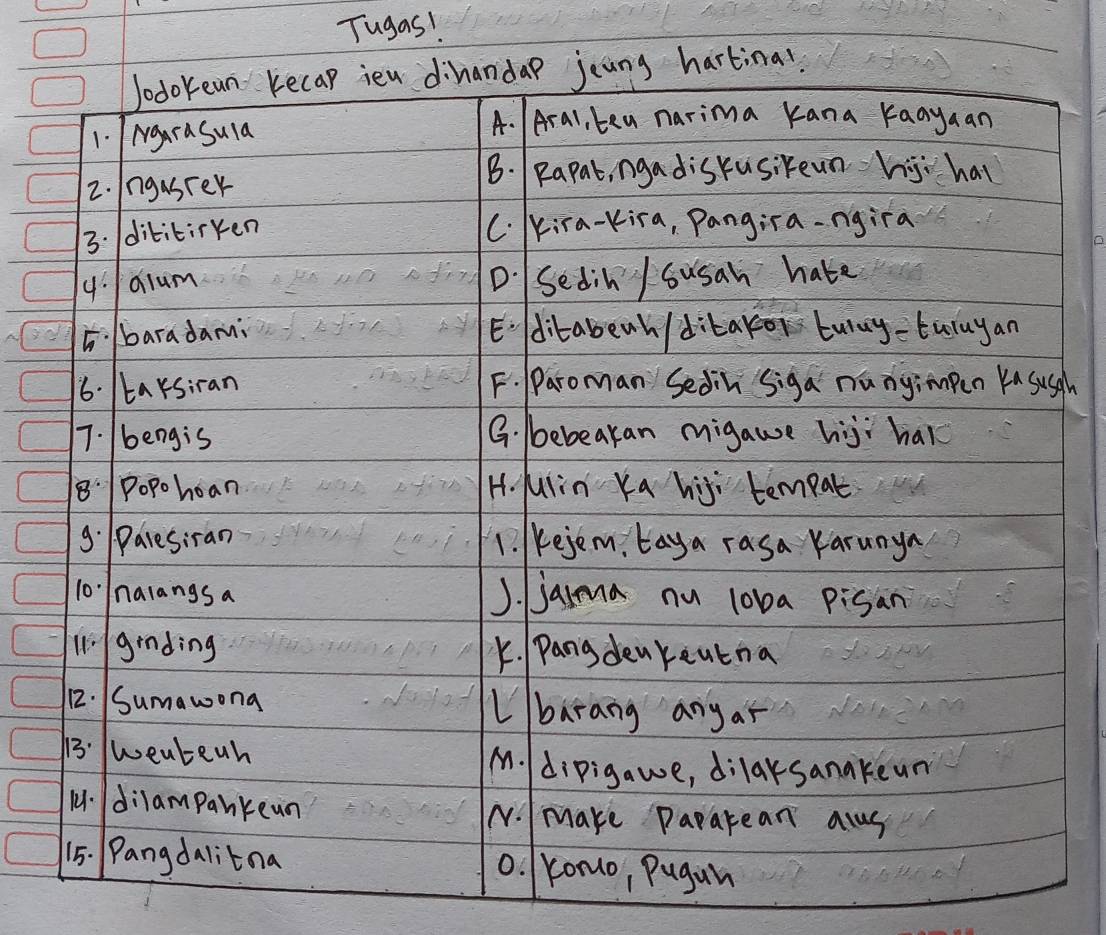 Tugas!
Jodokeun kecap ieu dihandap jeung hartina!
1. Ngarasula A. Aral, teu narima kana kaayaan
2. ngusrek B. Rapat, ngadiskusikeun hiji hal
3. dititirken C. kira-kira, pangira-ngira
4. alum D. Sedih / Susah hate
5. baradami E. ditabeuh/ditakol tuluy-tuluyan
6. taksiran F. Paroman Sedih Siga nu nyimpen kasusah
7. bengis G. bebeakan migawe hiji hal
8. Popohoan H. Ulin ka hiji tempat
9. Palesiran I. kejem, taya rasa karunya
10. nalangsa J. jalma nu loba pisan
11. ginding K. Pangdeukeutna
12. Sumawona L barang anyar
13. Weuteuh M. dipigawe, dilaksanakeun
14. dilampahkeun N. make Papakean alus
15. Pangdalitna O. komo, Puguh